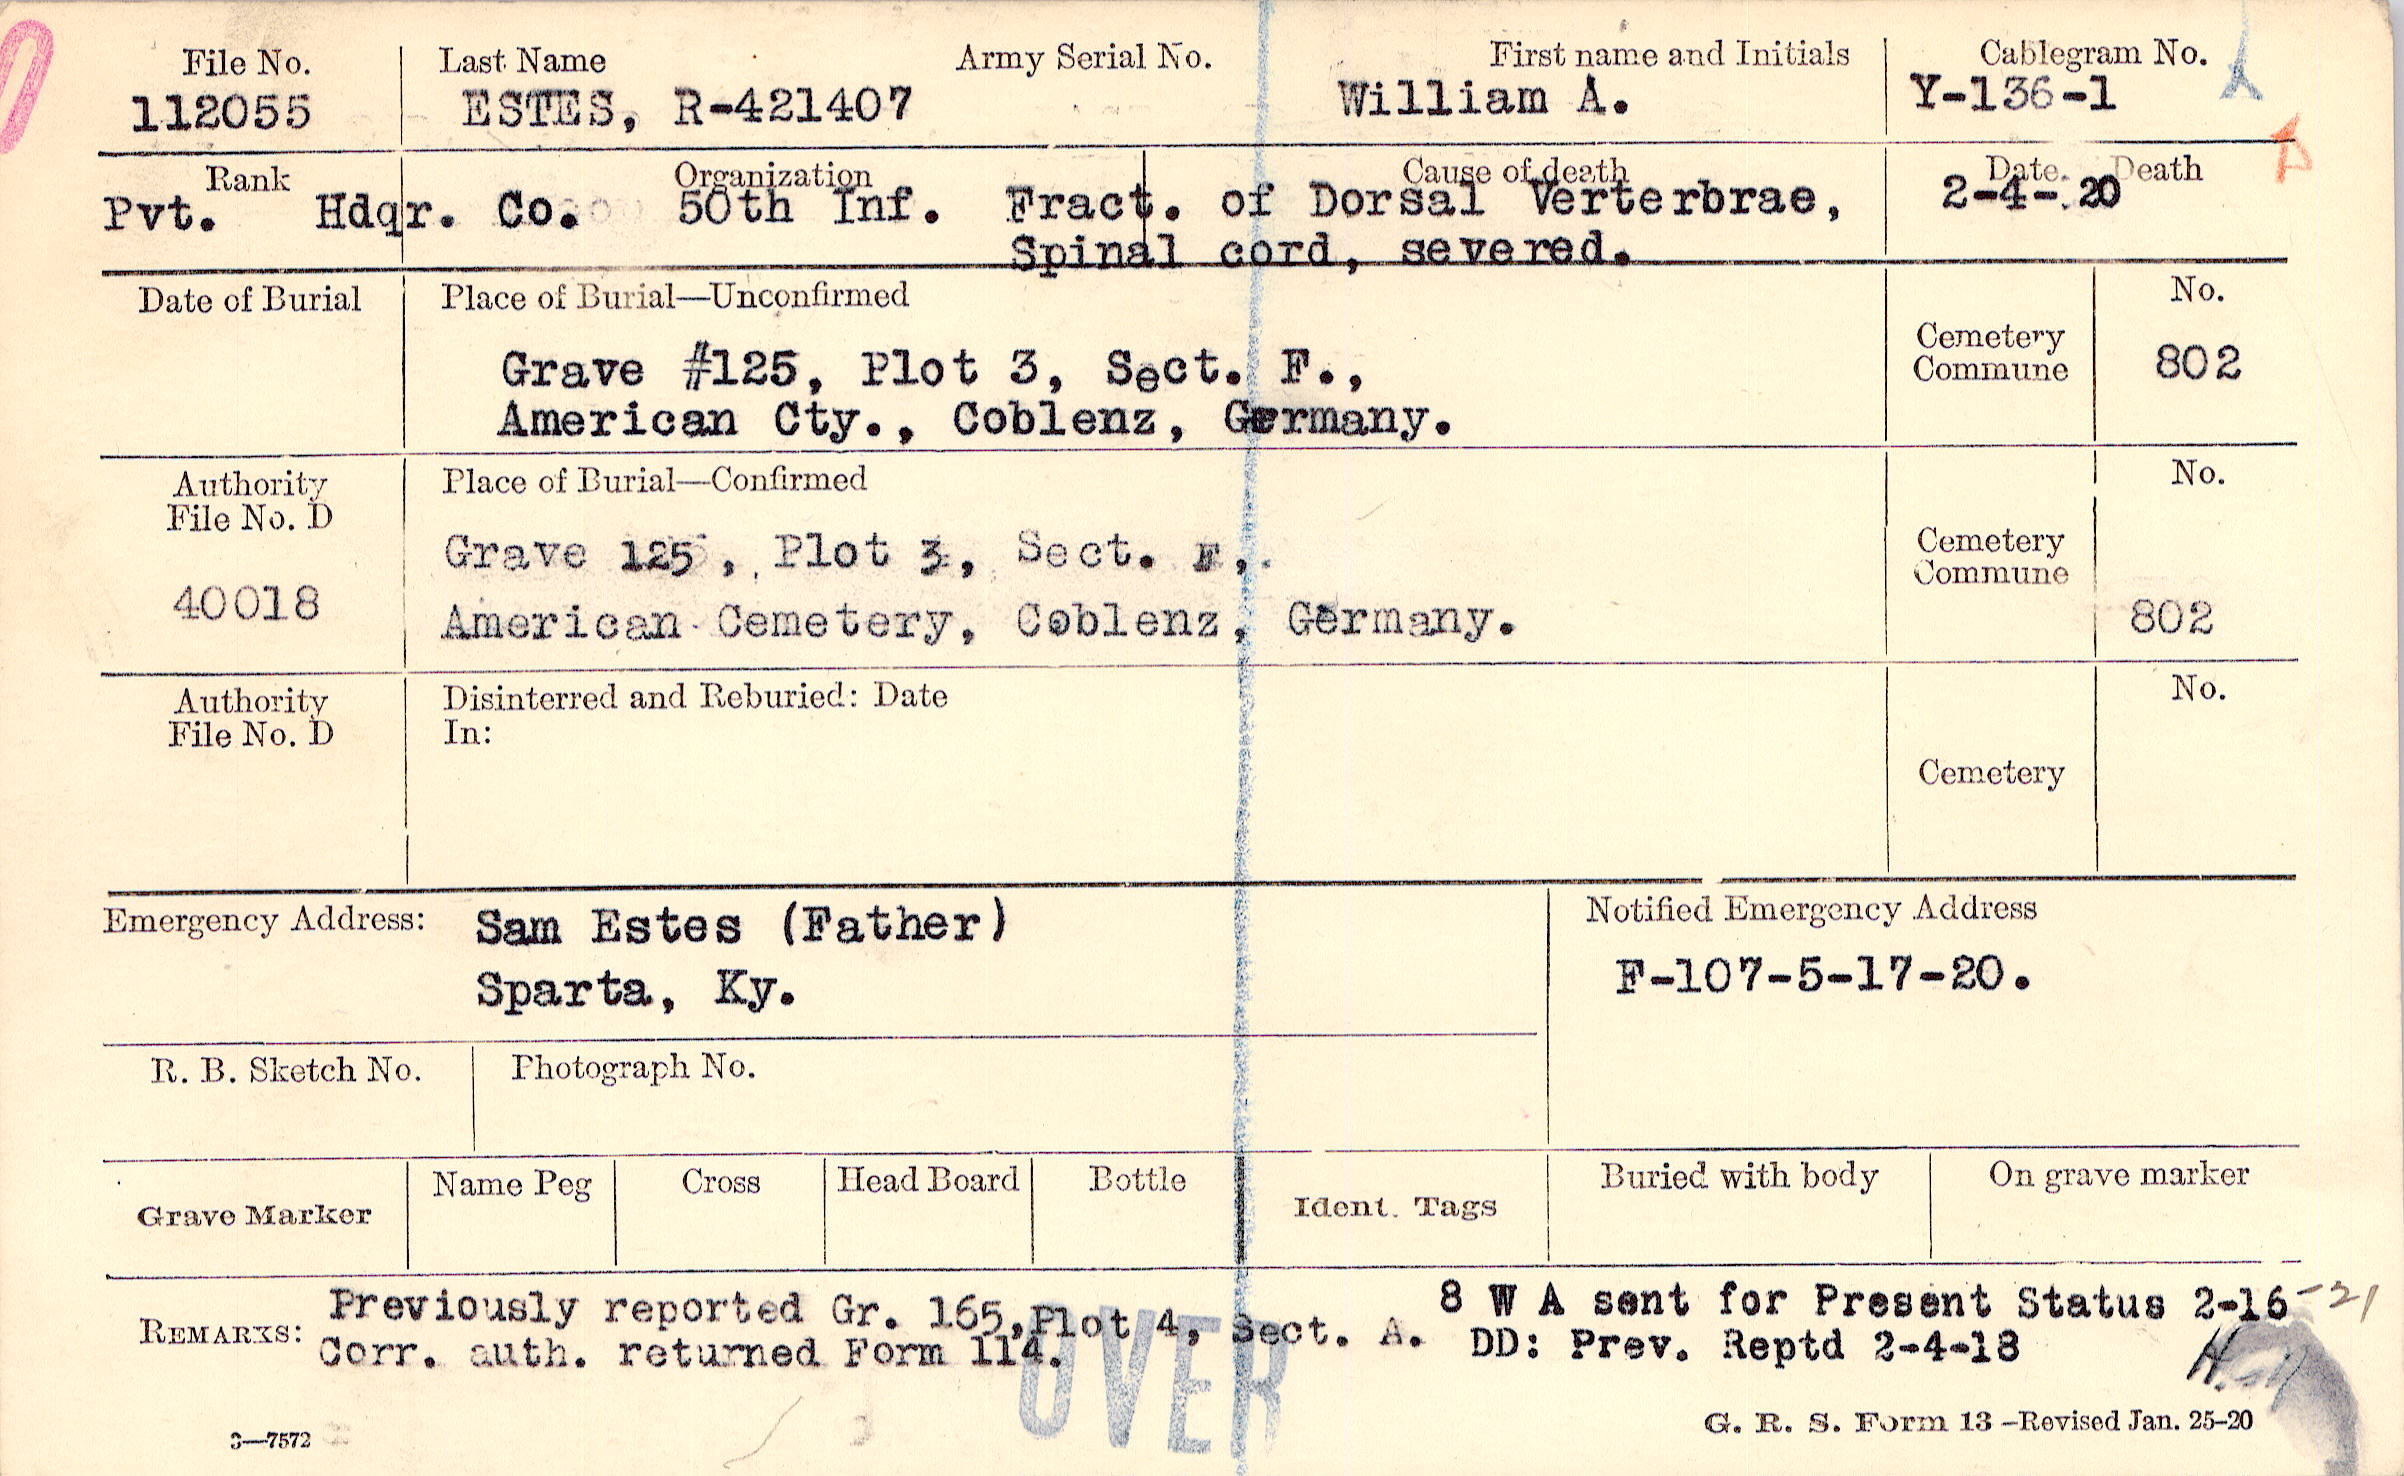 File No. Last Name Army Serial No. First name and Initials Cablegram No.
112055 ESTES, R-421407 William A. Y-136-1
Rank Organization Cause of death Date Death
Pvt. Hdqr. Co. 50th Inf. Fract. of Dorsal Verterbrae, 2-4-20
Spinal cord, severed.
Date of Burial Place of Burial—Unconfirmed No.
Grave #125, Plot 3, Sect. F., Cemetery Commune 802
American Cty., Coblenz, Germany.
Authority File No. D Place of Burial—Confirmed No.
Grave 125, Plot 3, Sect. F,. Cemetery Commune
40018 American Cemetery, Coblenz, Germany. 802
Authority Disinterred and Reburied: Date No.
File No. D In:
Cemetery
Emergency Address: Sam Estes (Father) Notified Emergency Address
Sparta, Ky. F-107-5-17-20.
R. B. Sketch No. Photograph No.
Name Peg Cross Head Board Bottle Buried with body On grave marker
Grave Marker Ident. Tags
REMARKS: Previously reported Gr. 165, Plot 4, Sect. A. 8 W A sent for Present Status 2-16-21
Corr. auth. returned Form 114. DD: Prev. Reptd 2-4-18
OVER
3—7572 G. R. S. Form 13—Revised Jan. 25-20